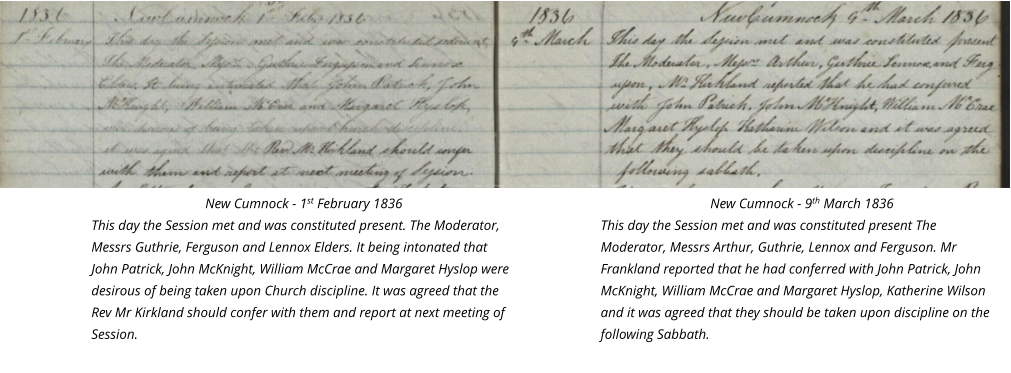 1836 New Cumnock 1st Feby 1836
1st February This day the Session met and was constituted sederunt,
The Moderator, Messrs Guthrie Ferguson and Lennox
Elders. It being intimated that John Patrick, John
McKnight, William McCrae and Margaret Hyslop,
were desirous of being taken upon Church discipline.
it was agreed that the Revd Mr Kirkland should confer
with them and report at next meeting of Session.
1836 New Cumnock 9th March 1836
9th March This day the Session met and was constituted present
The Moderator, Messrs Arthur, Guthrie Lennox and Ferg
uson, Mr Kirkland reported that he had conferred
with John Patrick, John McKnight, William McCrae
Margaret Hyslop Katharine Wilson and it was agreed
that they should be taken upon discipline on the
following sabbath.
New Cumnock - 1st February 1836
This day the Session met and was constituted present. The Moderator,
Messrs Guthrie, Ferguson and Lennox Elders. It being intonated that
John Patrick, John McKnight, William McCrae and Margaret Hyslop were
desirous of being taken upon Church discipline. It was agreed that the
Rev Mr Kirkland should confer with them and report at next meeting of
Session.
New Cumnock - 9th March 1836
This day the Session met and was constituted present The
Moderator, Messrs Arthur, Guthrie, Lennox and Ferguson. Mr
Frankland reported that he had conferred with John Patrick, John
McKnight, William McCrae and Margaret Hyslop, Katherine Wilson
and it was agreed that they should be taken upon discipline on the
following Sabbath.